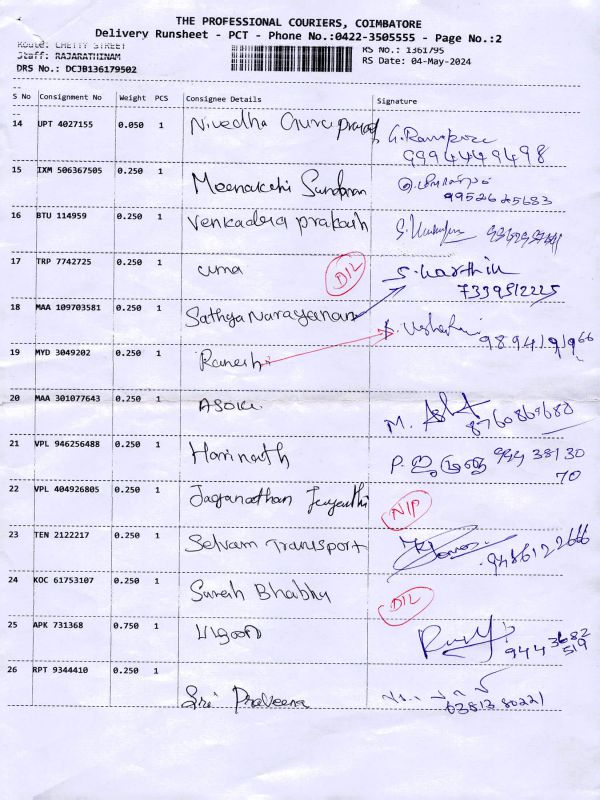 THE PROFESSIONAL COURIERS, COIMBATORE
Delivery Runsheet - PCT - Phone No.:0422-3505555 - Page No.:2
Route: CHETTY STREET
Staff: RAJARATHINAM
DRS No.: DCJB136179502
RS No.: 1361795
RS Date: 04-May-2024
S No Consignment No Weight PCS Consignee Details Signature
14 UPT 4027155 0.050 1 Nivedha Guru prasad
9994449498
15 IXM 506367505 0.250 1 Meenakshi Sundaram
9952645683
16 BTU 114959 0.250 1 Venkadesa prakash
17 TRP 7742725 0.250 1 uma D/L S. Karthik
7339512225
18 MAA 109703581 0.250 1 Sathya Narayanan
9894191966
19 MYD 3049202 0.250 1 Ramesh
20 MAA 301077643 0.250 1 ASOK M.
8760869680
21 VPL 946256488 0.250 1 Harinath P. 994 38130
70
22 VPL 404926805 0.250 1 Jaganathan N/P
23 TEN 2122217 0.250 1 Selvam Transport
9486122666
24 KOC 61753107 0.250 1 Suresh Bhabhu D/L
25 APK 731368 0.750 1
944 3682
519
26 RPT 9344410 0.250 1 Sri Praveena
6381380221